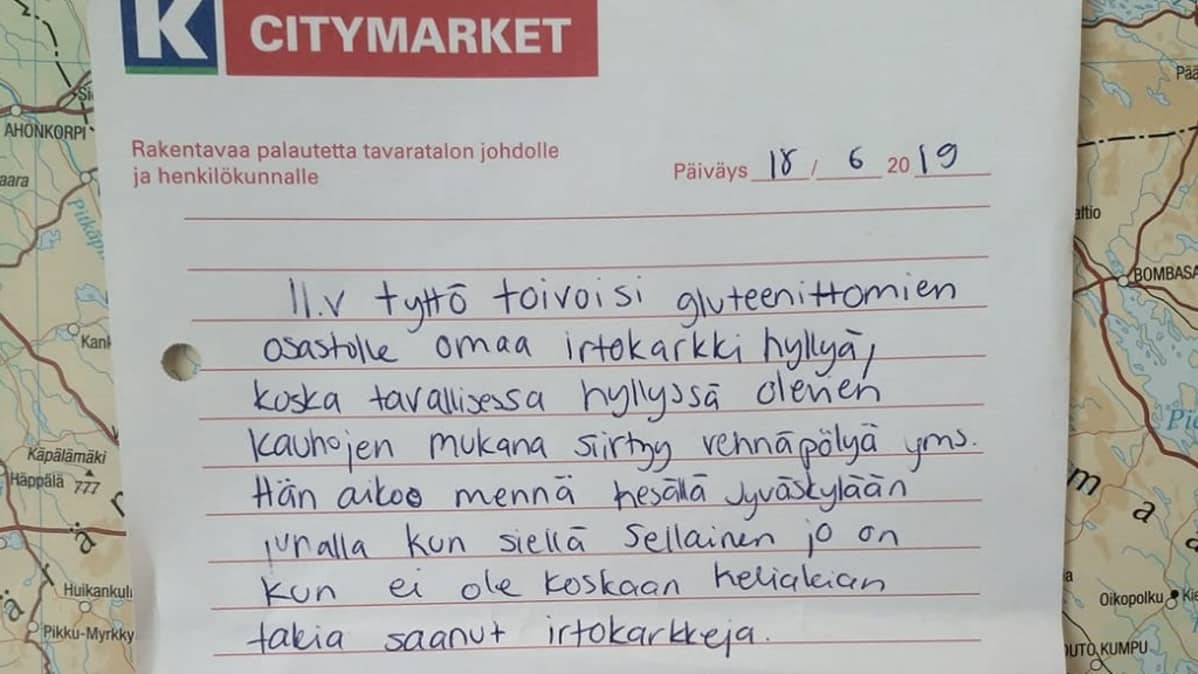 K CITYMARKET
Rakentavaa palautetta tavaratalon johdolle
ja henkilökunnalle
Päiväys 18 / 6 2019
11.v tyttö toivoisi gluteenittomien
osastolle omaa irtokarkki hyllyä,
koska tavallisessa hyllyssä olevien
kauhojen mukana siirtyy vehnäpölyä yms.
Hän aikoo mennä kesällä Jyväskylään
junalla kun siellä sellainen jo on
kun ei ole koskaan keliakian
takia saanut irtokarkkeja.
AHONKORPI
aara
Pitkäp
Kank
Käpälämäki
Häppälä 777
Huikankul
Pikku-Myrkky
Pää
altio
BOMBASA
Pie
m
a
Oikopolku Kie
OUTO KUMPU